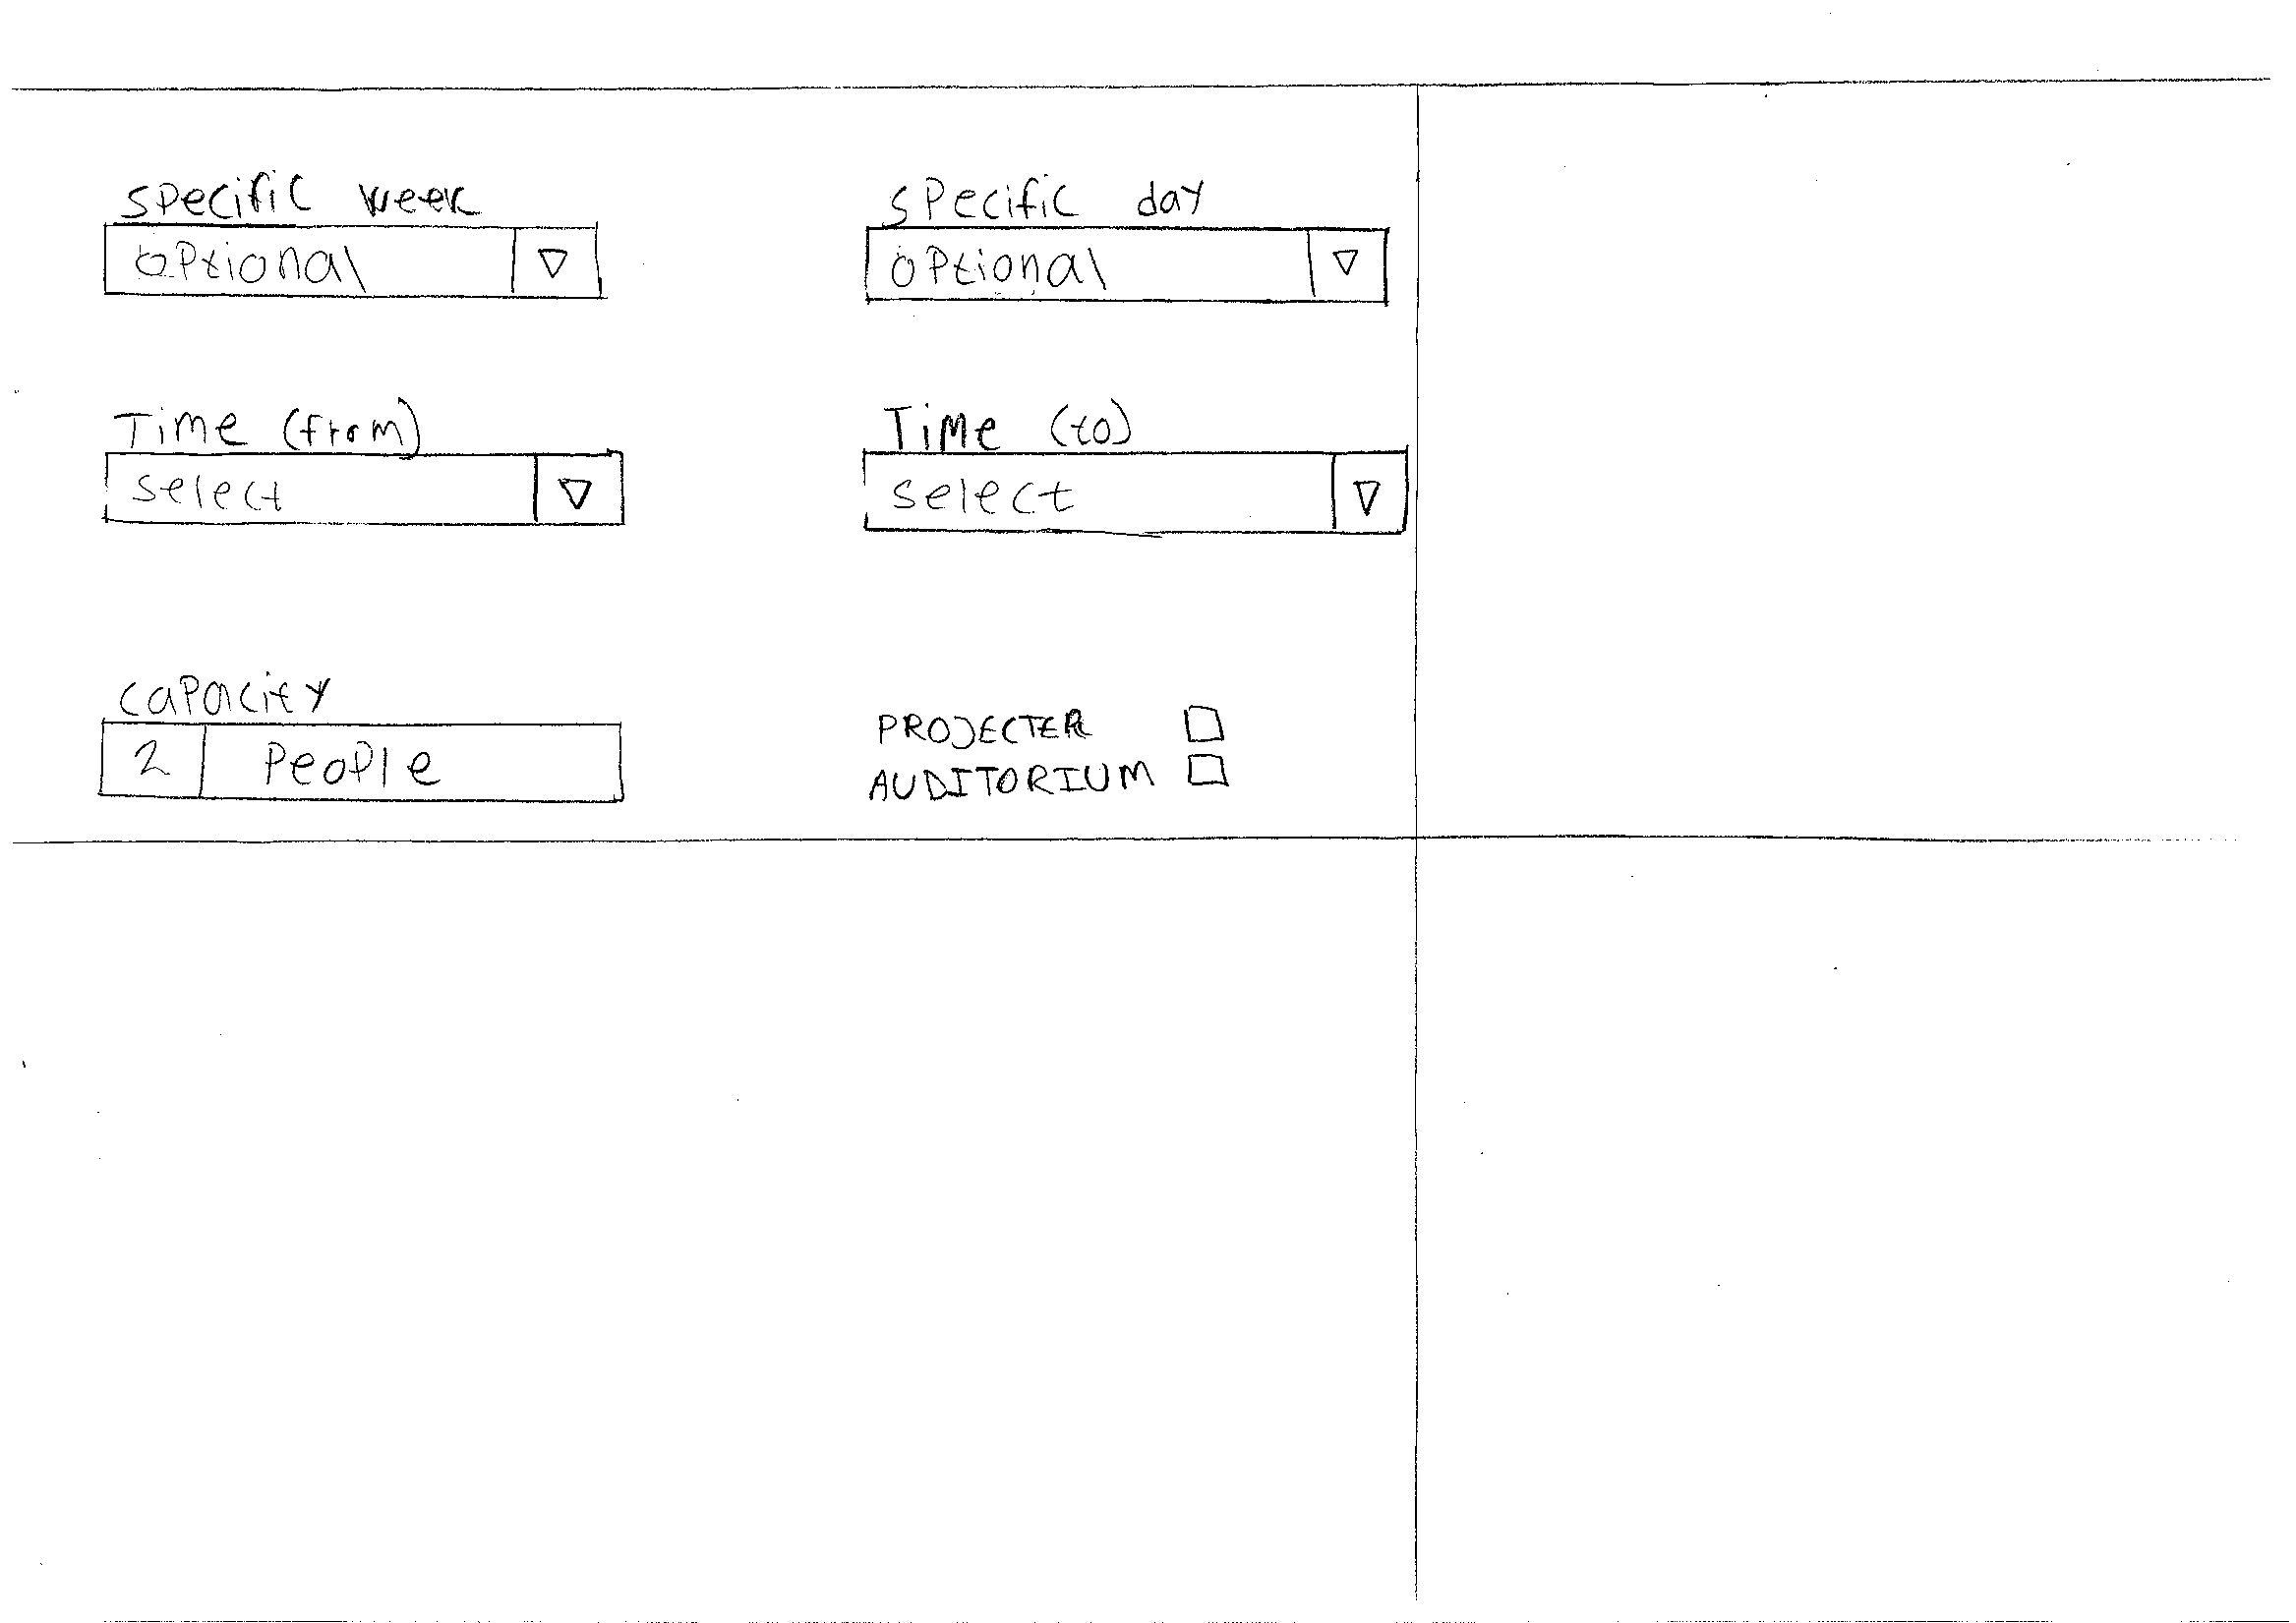 Specific week
optional
Specific day
optional
Time (from)
select
Time (to)
select
capacity
2 People
PROJECTER
AUDITORIUM